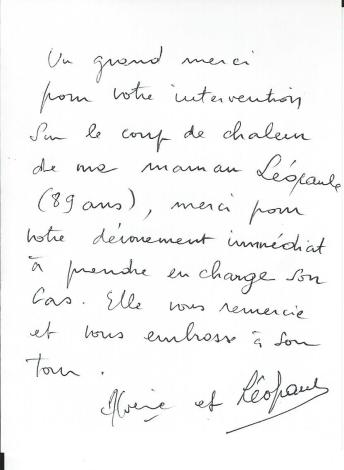 Un grand merci
pour votre intervention
sur le coup de chaleur
de ma maman Léopaule
(89 ans), merci pour
votre dévouement immédiat
à prendre en charge son
cas. Elle vous remercie
et vous embrasse à son
tour.
et Léopaule